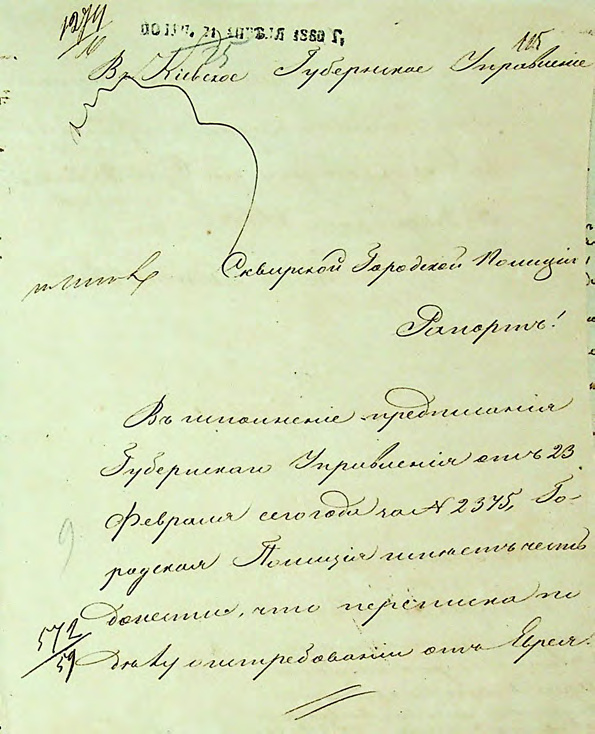 1274
ПОЛУЧ. 21 АПРѢЛЯ 1860 Г.
115
Въ Кіевское Губернское Управленіе
Сквирской Городской Полиціи
Рапортъ!
Въ исполненіе предписанія
Губернскаго Управленія отъ 23
Февраля сего года за N 2375, Го-
родская Полиція имѣетъ честь
донести, что переписка по
дѣлу о истребованіи отъ Еврея
572
59